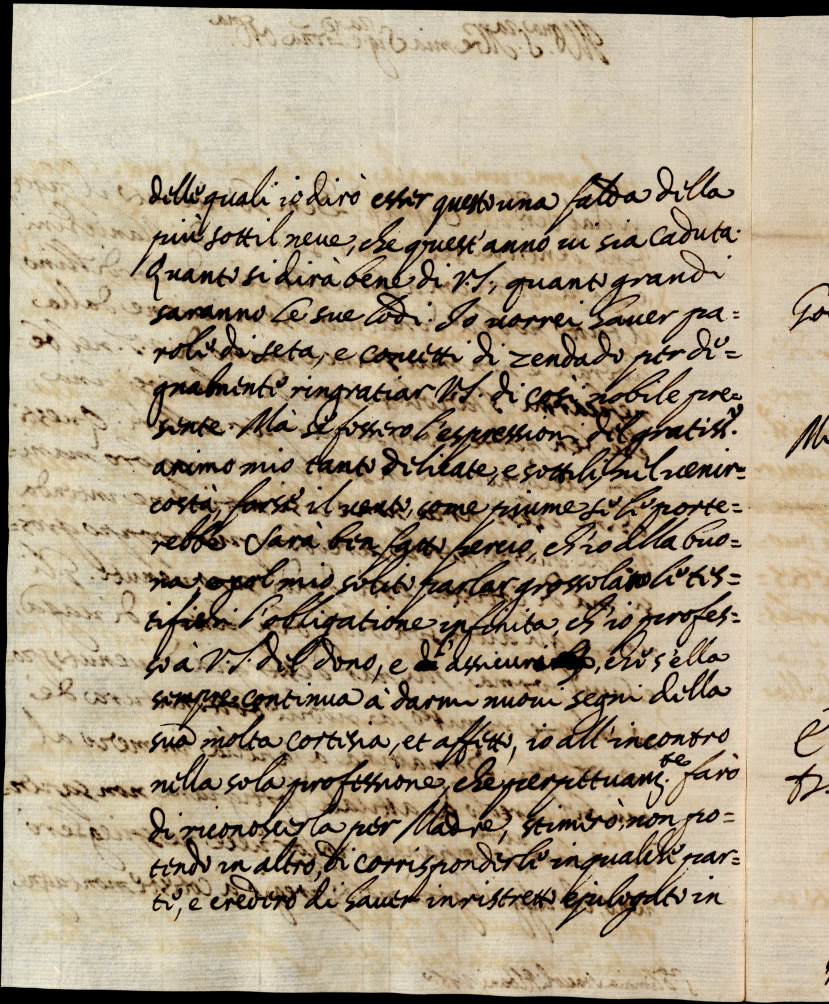 delle quali io dirò esser questo una falda della
più sottil neve, che quest'anno vi sia caduta.
Quanto si dirà bene di V.S., quanto grandi
saranno le sue lodi. Io vorrei haver pa=
role di seta, e concetti di zendado per de=
gnalmente ringratiar V.S. di così nobile pre=
sente. Mà se fossero l'espressioni del gratiss.º
animo mio tanto delicate, e sottili, nel venir
costà, forse il vento, come piume se le porte=
rebbe. Sarà ben fatto perciò, ch'io alla buo=
na, e pel mio solito parlar grossolano le tes=
tifichi l'obligatione infinita, ch'io profes=
so à V.S. del dono, e l'assicuri, che s'ella
sempre continua à darmi nuovi segni della
sua molta cortesia, et affetto, io all'incontro
nella sola professione, che perpetuam.te farò
di riconoscerla per Madre, stimerò, non po=
tendo in altro, di corrisponderle in qualche par=
te, e crederò di haver in ristretto epilogato in